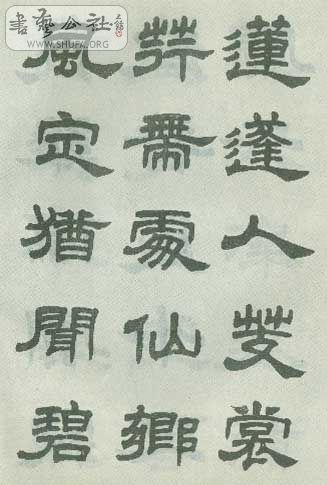 書藝公社
WWW.SHUFA.ORG
蓮蓬人芰裳
荇帶處仙鄉
風定猶聞碧